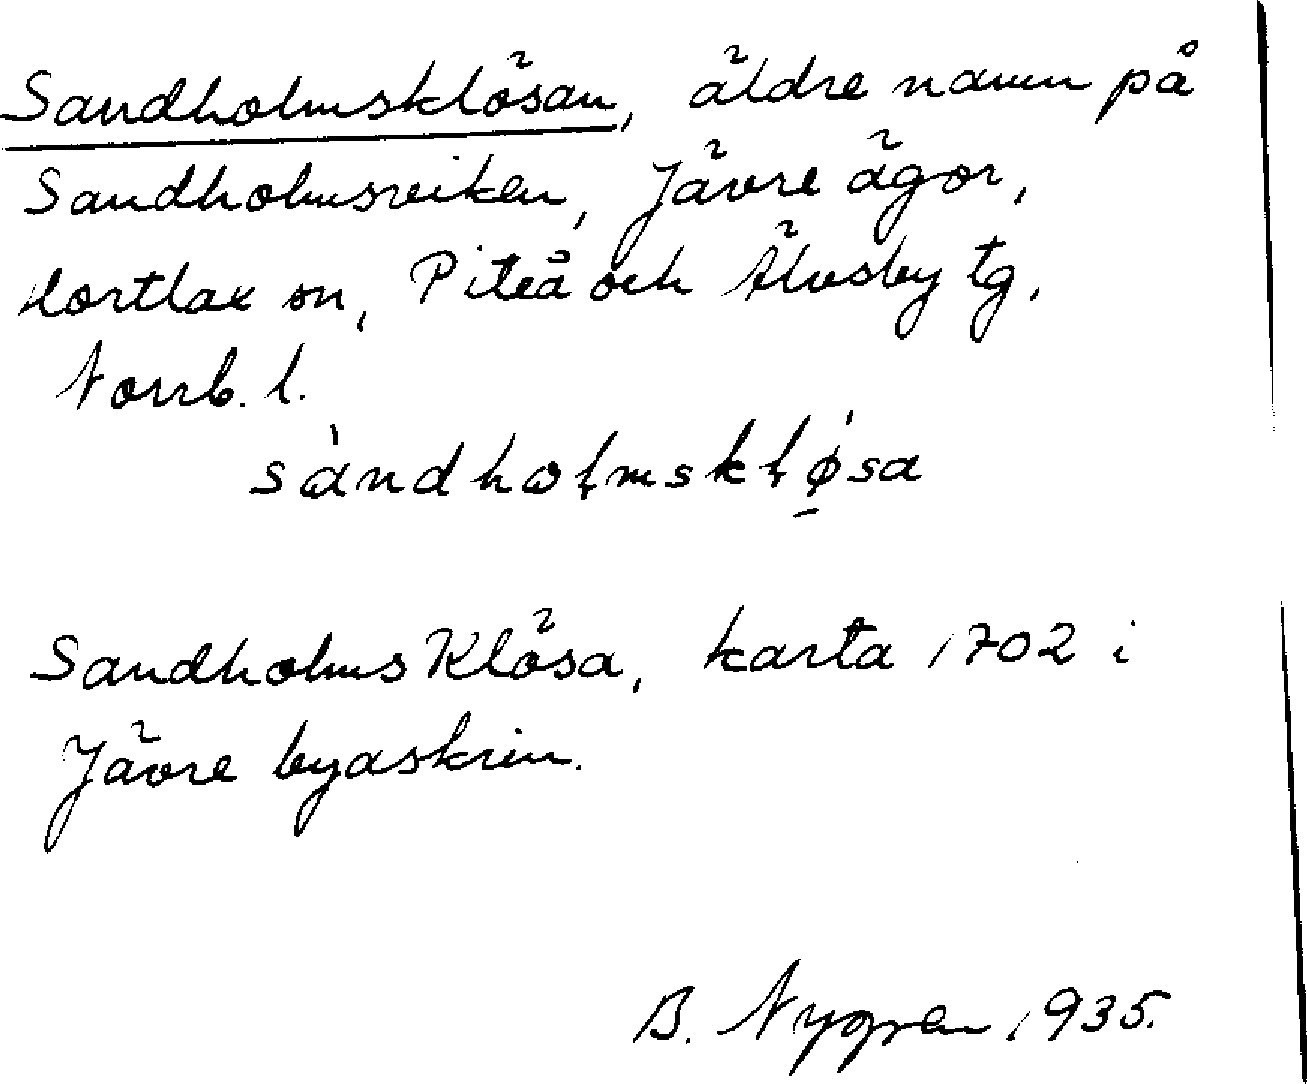 Sandholmsklösan, äldre namn på
Sandholmsviken, Jävre ägor,
Hortlax sn, Piteå och Älvsby tg,
Norrb. l.
sàndhołmskłǿ̱sa
Sandholms Klösa, karta 1702 i
Jävre byaskrin.
B. Nygren 1935.